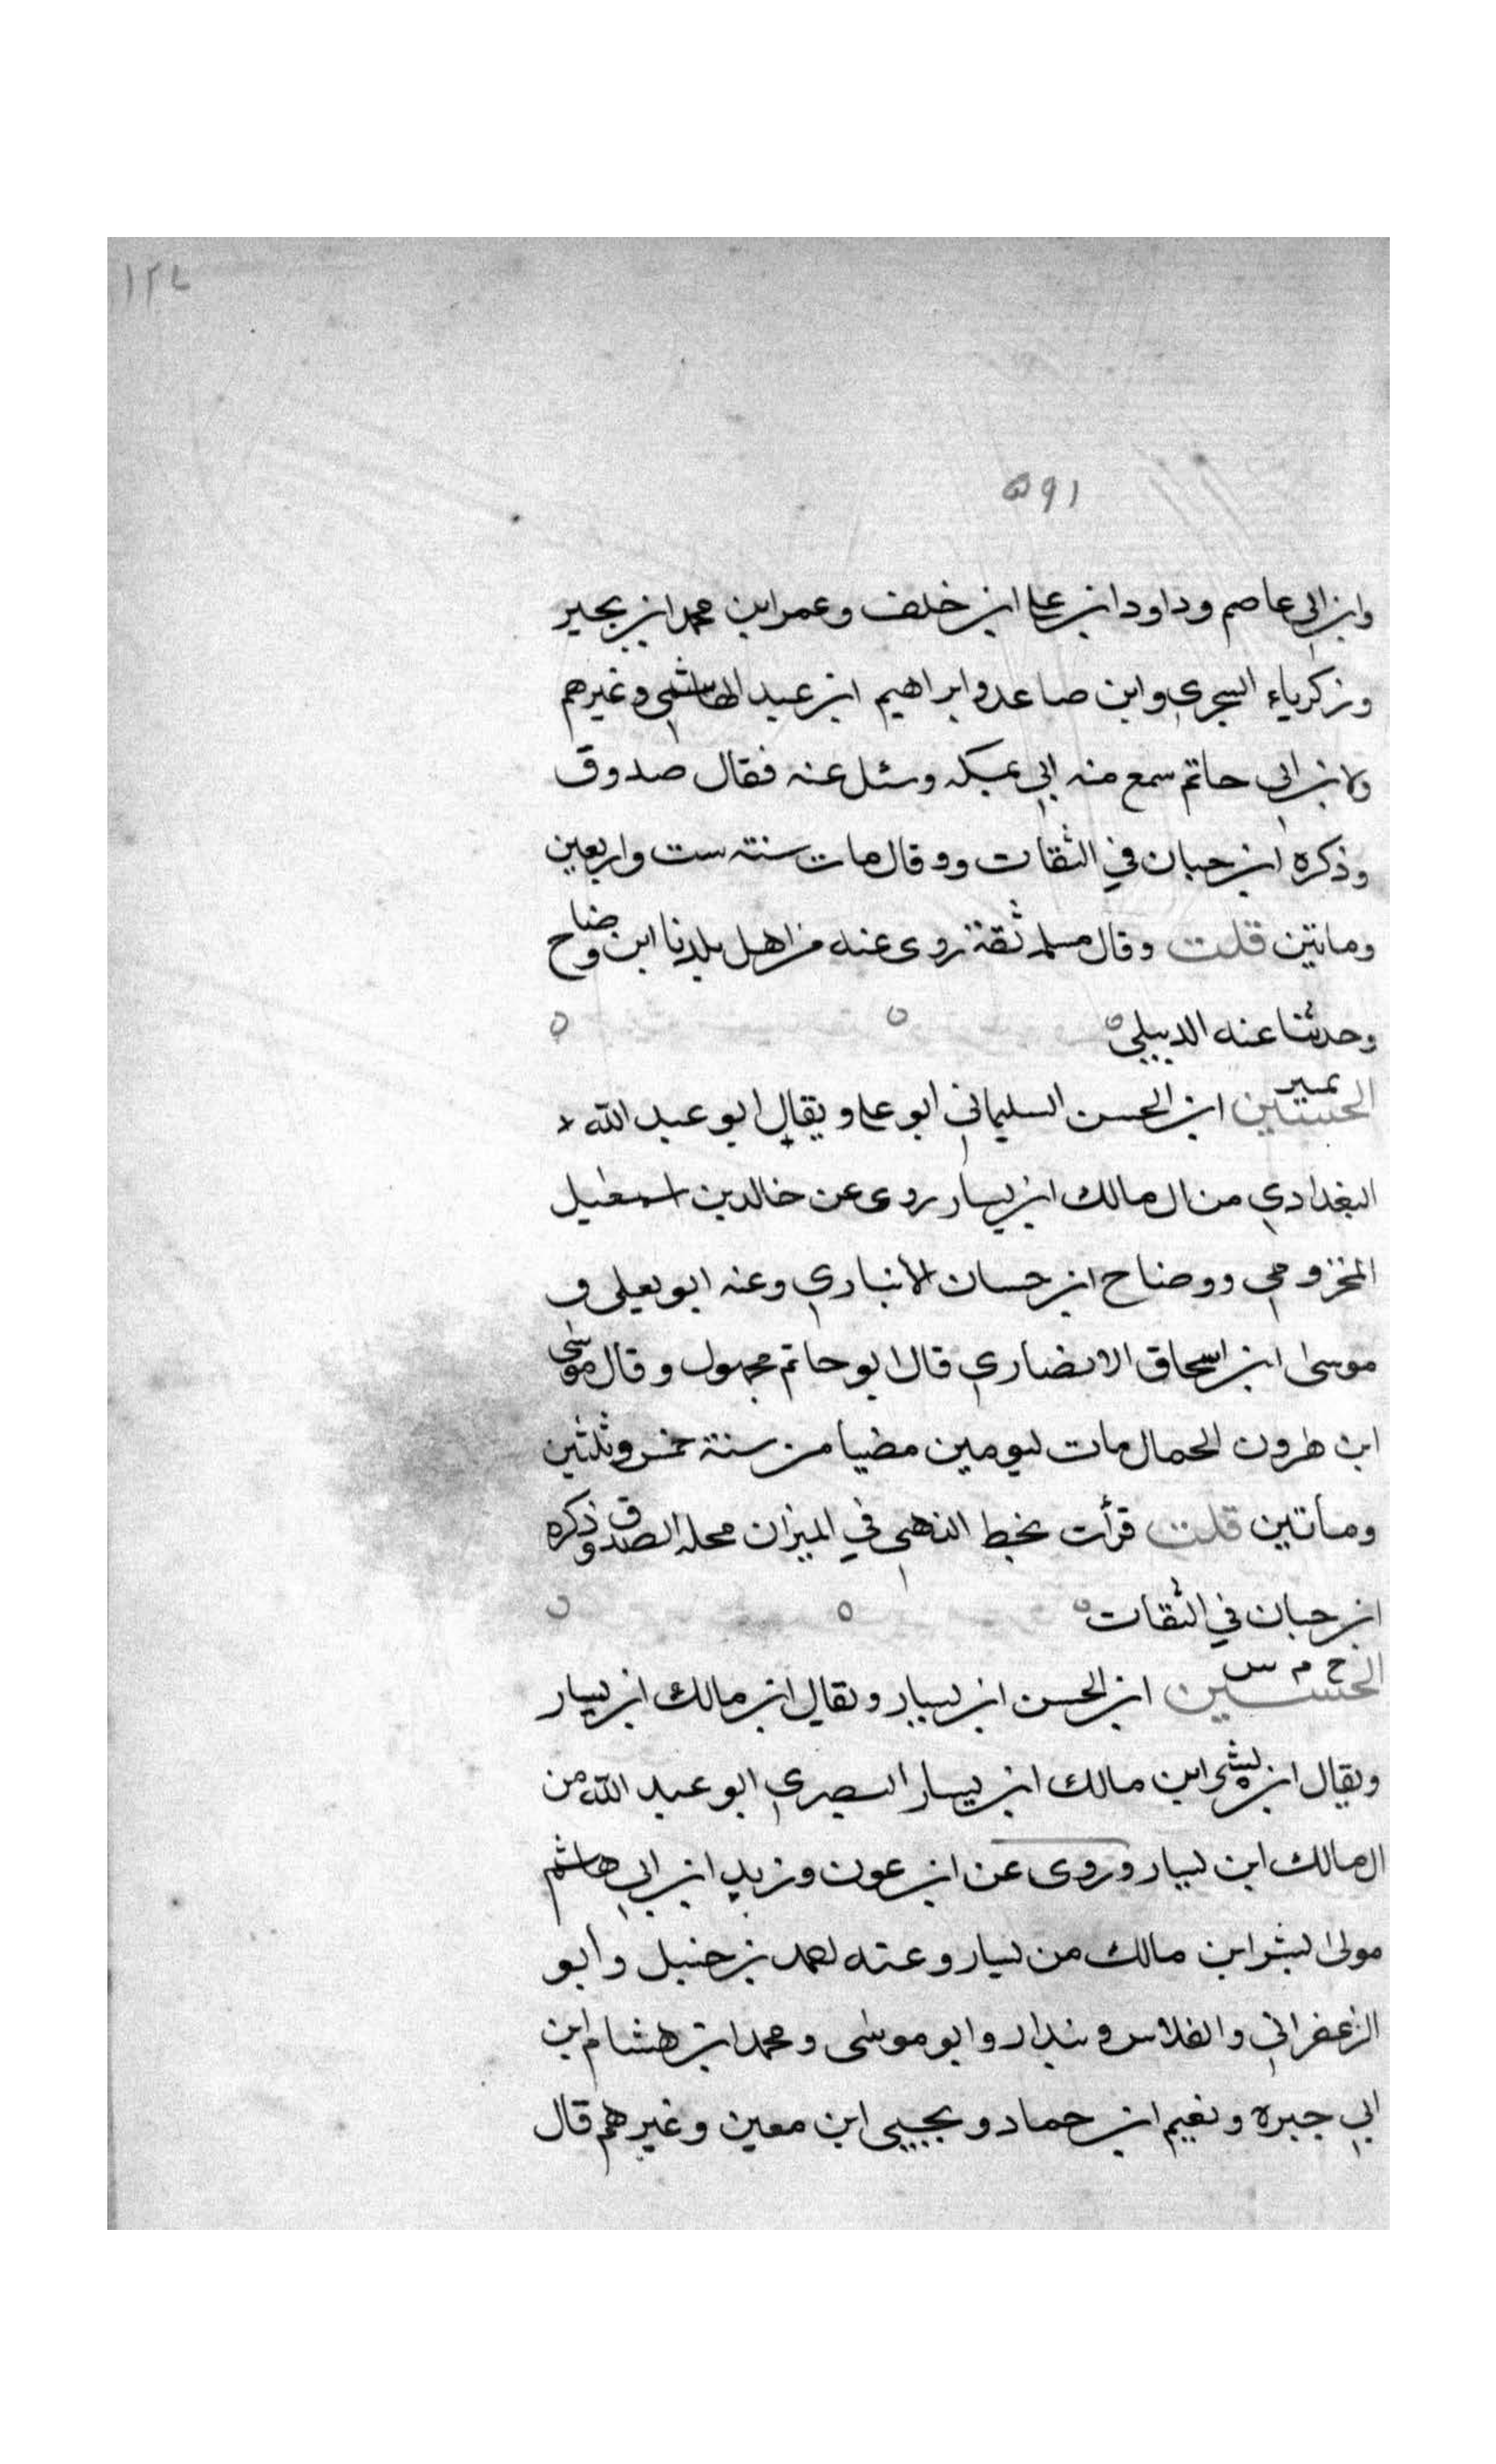 ١٢٤
٥٩١
وابن ابي عاصم وداود ابن على ابن خلف وعمر ابن محمد ابن بجير
وزكرياء السجزي وابن صاعد وابراهيم ابن عبد الهاشمي وغيرهم
ولابن ابي حاتم سمع منه ابي بمكه وسئل عنه فقال صدوق
وذكره ابن حبان في الثقات وو قال مات سنته ست واربعين
وماتين قلت وقال مسلمه ثقة روى عنه من اهل بلدنا ابن وضاح
وحدثنا عنه الديبلي
الحسين تمييز ابن الحسن السليماني ابو على ويقال ابو عبد الله
البغدادي من ال مالك ابن يسار روى عن خالد بن اسمعيل
المخزومي ووضاح ابن حسان الانباري وعنه ابو يعلى و
موسى ابن اسحاق الانصاري قال ابو حاتم مجهول وقال موسى
ابن هرون الحمال مات ليومين مضيا من سنة خمس وثلثين
وماتين قلت قرأت بخط الذهبي في الميزان محله الصدق وذكره
ابن حبان في الثقات
الحسين خ م س ابن الحسن ابن يسار ويقال ابن مالك ابن يسار
ويقال ابن بشر ابن مالك ابن يسار البصري ابو عبد الله من
ال مالك ابن يسار وروى عن ابن عون وزيد ابن ابي هاشم
مولى لبشر ابن مالك من يسار وعنه احمد بن حنبل وابو
الزعفراني والفلاس وبندار وابو موسى ومحمد ابن هشام ابن
ابي جبره ونعيم ابن حماد ويحيى ابن معين وغيرهم قال